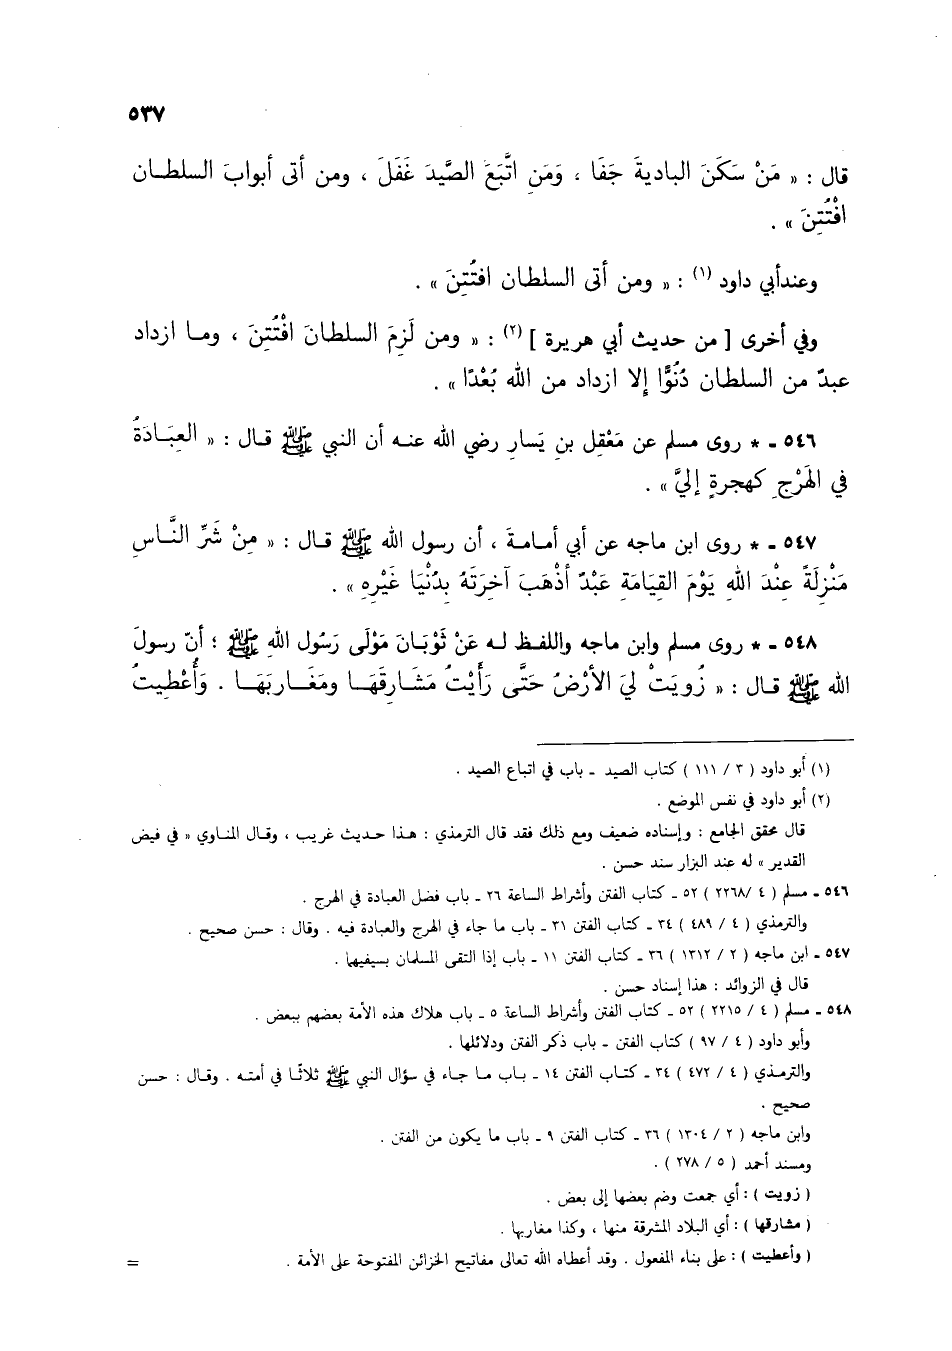 ٥٣٧
قال : « مَنْ سَكَنَ البادية جَفَا ، وَمَنِ اتَّبَعَ الصَّيدَ غَفَلَ ، ومن أتى أبوابَ السلطان
افْتُتِنَ » .
وعندأبي داود (١) : « ومن أتى السلطان افتُتِنَ » .
وفي أخرى [ من حديث أبي هريرة ] (٢) : « ومن لَزِمَ السلطانَ افْتُتِنَ ، وما ازداد
عبدٌ من السلطان دُنُوًّا إلا ازداد من الله بُعْدًا » .
٥٤٦ ـ * روى مسلم عن مَعْقِل بنِ يَسارِ رضي الله عنه أن النبي ﷺ قال : « العِبَادَةُ
في الهَرْجِ كهجرةٍ إليَّ » .
٥٤٧ ـ * روى ابن ماجه عن أبي أمامةَ ، أن رسول الله ﷺ قال : « مِنْ شَرِّ النَّاسِ
مَنْزِلَةً عِنْدَ اللهِ يَوْمَ القِيَامَةِ عَبْدٌ أذْهَبَ آخِرَتَهُ بِدُنْيَا غَيْرِهِ » .
٥٤٨ ـ * روى مسلم وابن ماجه واللفظ له عَنْ ثَوْبَانَ مَوْلَى رَسُول اللهِ ﷺ ؛ أنّ رسولَ
الله ﷺ قال : « زُويَتْ لِيَ الأرْضُ حَتَّى رَأَيْتُ مَشَارِقَهَا ومَغَاربَهَا . وَأُعْطِيتُ
(١) أبو داود ( ٣ / ١١١ ) كتاب الصيد ـ باب في اتباع الصيد .
(٢) أبو داود في نفس الموضع .
قال محقق الجامع : وإسناده ضعيف ومع ذلك فقد قال الترمذي : هذا حديث غريب ، وقال المناوي « في فيض
القدير » له عند البزار سند حسن .
٥٤٦ ـ مسلم ( ٤ /٢٢٦٨ ) ٥٢ ـ كتاب الفتن وأشراط الساعة ٢٦ ـ باب فضل العبادة في الهرج .
والترمذي ( ٤ / ٤٨٩ ) ٣٤ ـ كتاب الفتن ٣١ ـ باب ما جاء في الهرج والعبادة فيه . وقال : حسن صحيح .
٥٤٧ ـ ابن ماجه ( ٢ / ١٣١٢ ) ٣٦ ـ كتاب الفتن ١١ ـ باب إذا التقى المسلمان بسيفيهما .
قال في الزوائد : هذا إسناد حسن .
٥٤٨ ـ مسلم ( ٤ / ٢٢١٥ ) ٥٢ ـ كتاب الفتن وأشراط الساعة ٥ ـ باب هلاك هذه الأمة بعضهم ببعض .
وأبو داود ( ٤ / ٩٧ ) كتاب الفتن ـ باب ذكر الفتن ودلائلها .
والترمذي ( ٤ / ٤٧٢ ) ٣٤ ـ كتاب الفتن ١٤ ـ باب ما جاء في سؤال النبي ﷺ ثلاثًا في أمته . وقال : حسن
صحيح .
وابن ماجه ( ٢ / ١٣٠٤ ) ٣٦ ـ كتاب الفتن ٩ ـ باب ما يكون من الفتن .
ومسند أحمد ( ٥ / ٢٧٨ ) .
( زويت ) : أي جمعت وضم بعضها إلى بعض .
( مشارقها ) : أي البلاد المشرقة منها ، وكذا مغاربها .
( وأعطيت ) : على بناء المفعول . وقد أعطاه الله تعالى مفاتيح الخزائن المفتوحة على الأمة . =